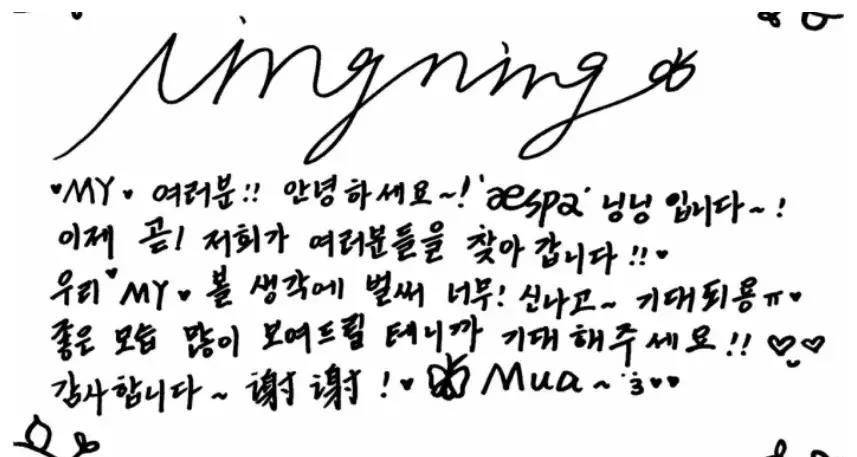 ningning
♥MY♥ 여러분!! 안녕하세요~! 'aespa' 닝닝 입니다~!
이제 곧! 저희가 여러분들을 찾아 갑니다!!♥
우리♥MY♥ 볼 생각에 벌써 너무! 신나고~ 기대되용ㅠ♥
좋은 모습 많이 보여드릴 테니까 기대해주세요!! ♡♡
감사합니다~ 謝謝!♥ Mua~ :3♥♥